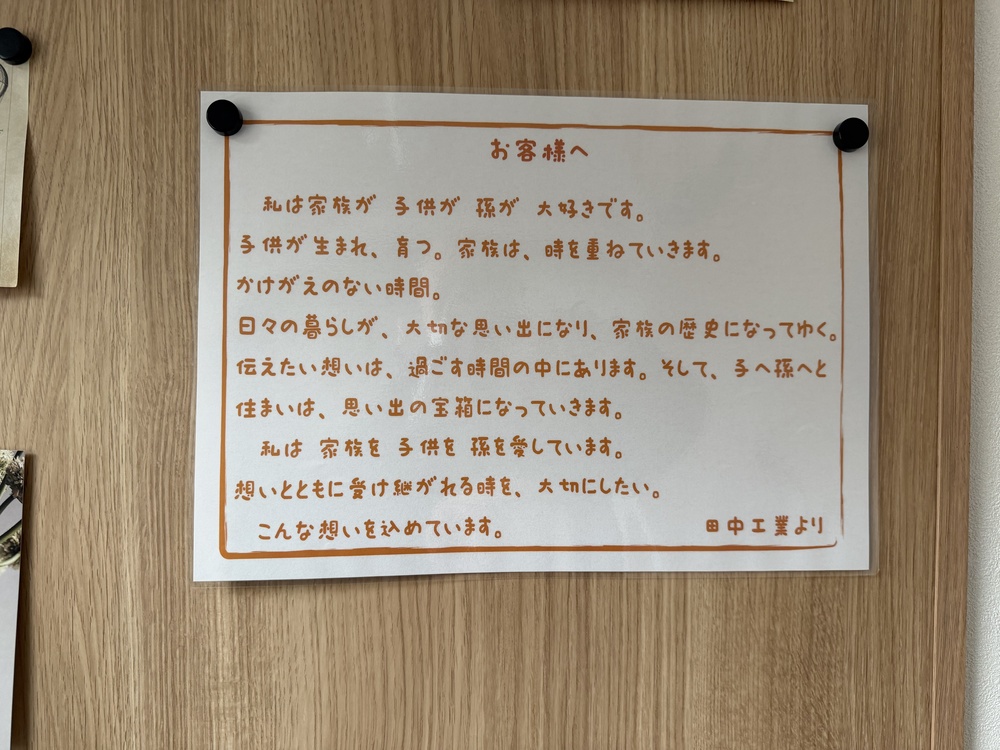 お客様へ
私は家族が 子供が 孫が 大好きです。
子供が生まれ、育つ。家族は、時を重ねていきます。
かけがえのない時間。
日々の暮らしが、大切な思い出になり、家族の歴史になってゆく。
伝えたい想いは、過ごす時間の中にあります。そして、子へ孫へと
住まいは、思い出の宝箱になっていきます。
私は 家族を 子供を 孫を愛しています。
想いとともに受け継がれる時を、大切にしたい。
こんな想いを込めています。
田中工業より